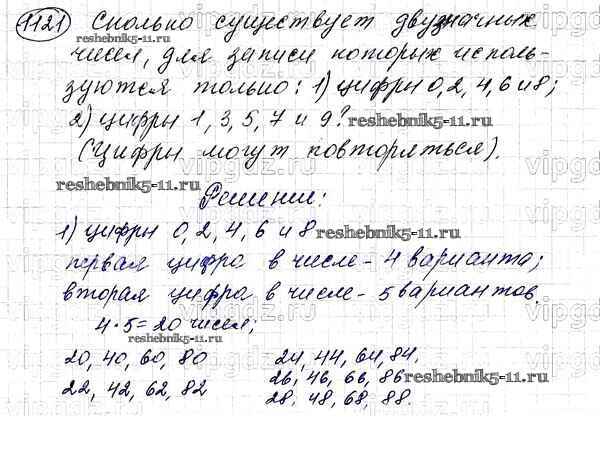 1121 Сколько существует двузначных
чисел, для записи которых исполь-
зуются только: 1) цифры 0, 2, 4, 6 и 8;
2) цифры 1, 3, 5, 7 и 9? reshebnik5-11.ru
(Цифры могут повторяться).
reshebnik5-11.ru
Решение:
1) цифры 0, 2, 4, 6 и 8 reshebnik5-11.ru
первая цифра в числе - 4 варианта;
вторая цифра в числе - 5 вариантов.
4·5=20 чисел;
reshebnik5-11.ru
20, 40, 60, 80 24, 44, 64, 84,
22, 42, 62, 82 26, 46, 66, 86 reshebnik5-11.ru
28, 48, 68, 88.